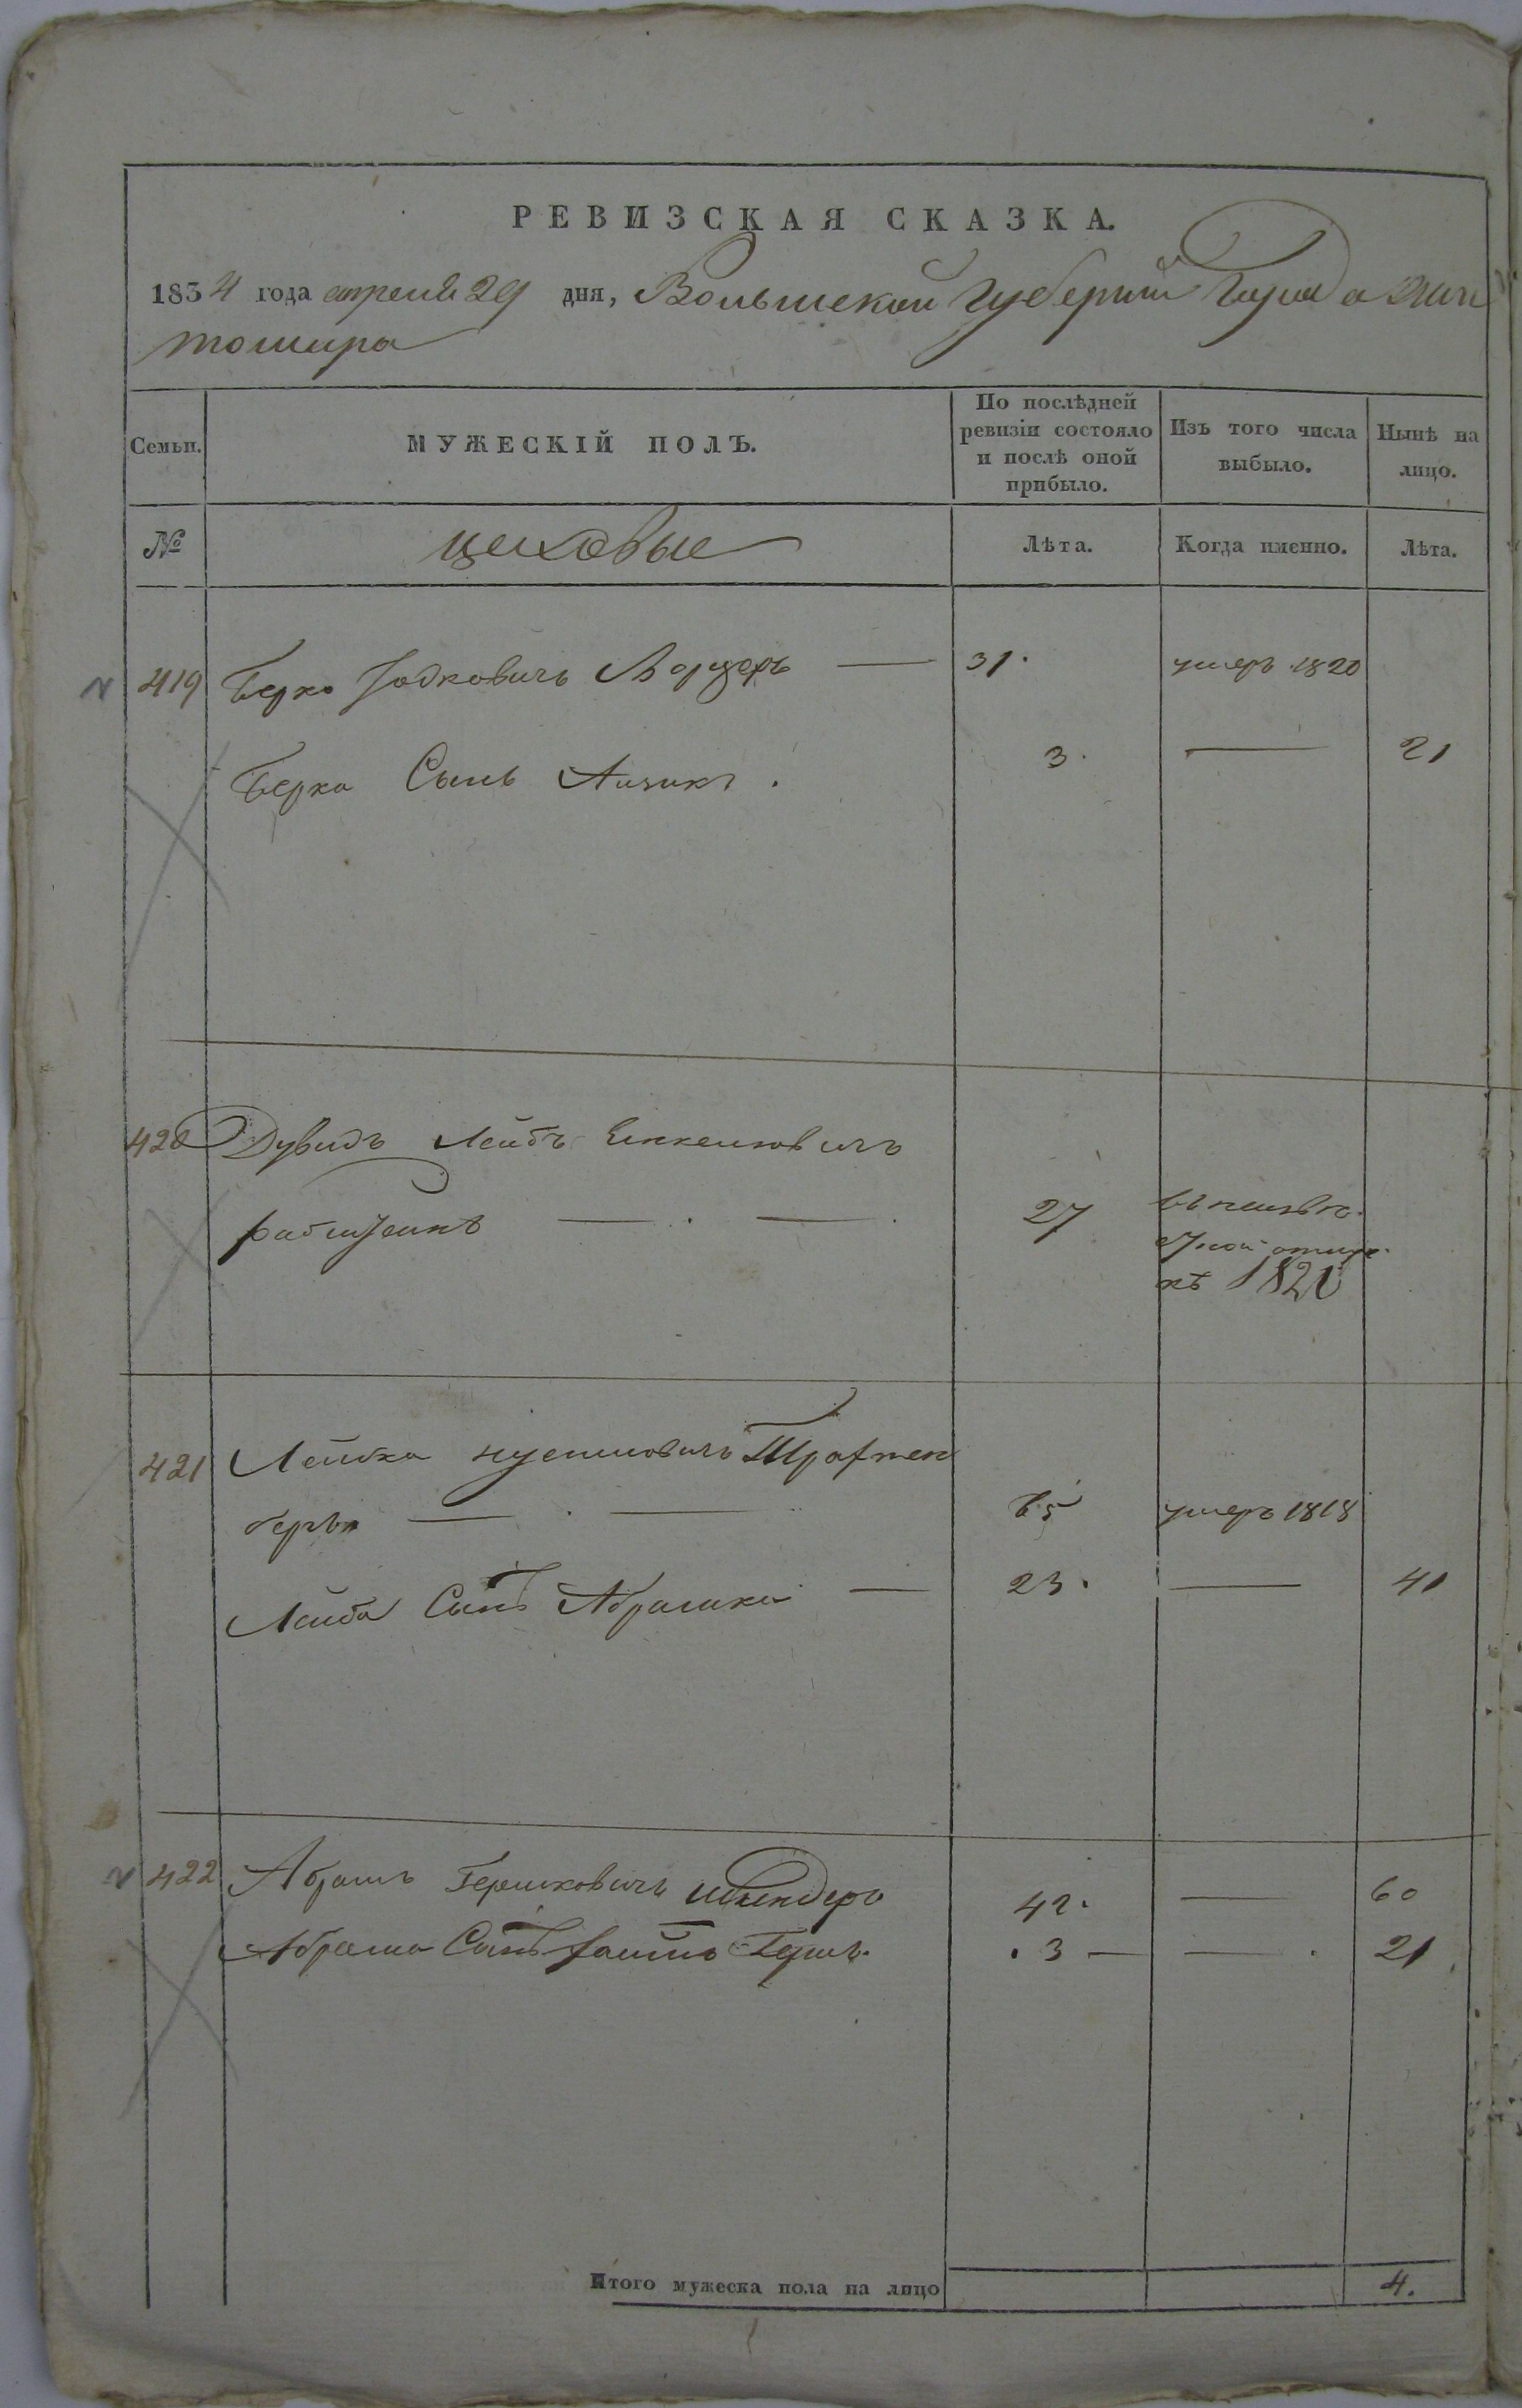 РЕВИЗСКАЯ СКАЗКА.
1834 года апреля 29 дня, Волынской Губернии Города Жи
томира
Семьи. МУЖЕСКІЙ ПОЛЪ. По послѣдней ревизіи состояло и послѣ оной прибыло. Изъ того числа выбыло. Нынѣ на лицо.
№ цеховые Лѣта. Когда именно. Лѣта.
419 Берко 31. умеръ 1820
Берка Сынъ Аизикъ. 3. — 21
420 Дувидъ Лейбъ
27
1820
421 Лейбка
беръ 65 умеръ 1818
Лейба Сынъ Абрамка — 23. — 41
422 Абрамъ Гершковичъ 42. — 60
Абрама Сынъ Гершъ. 3 — — 21
Итого мужеска пола на лицо 4.